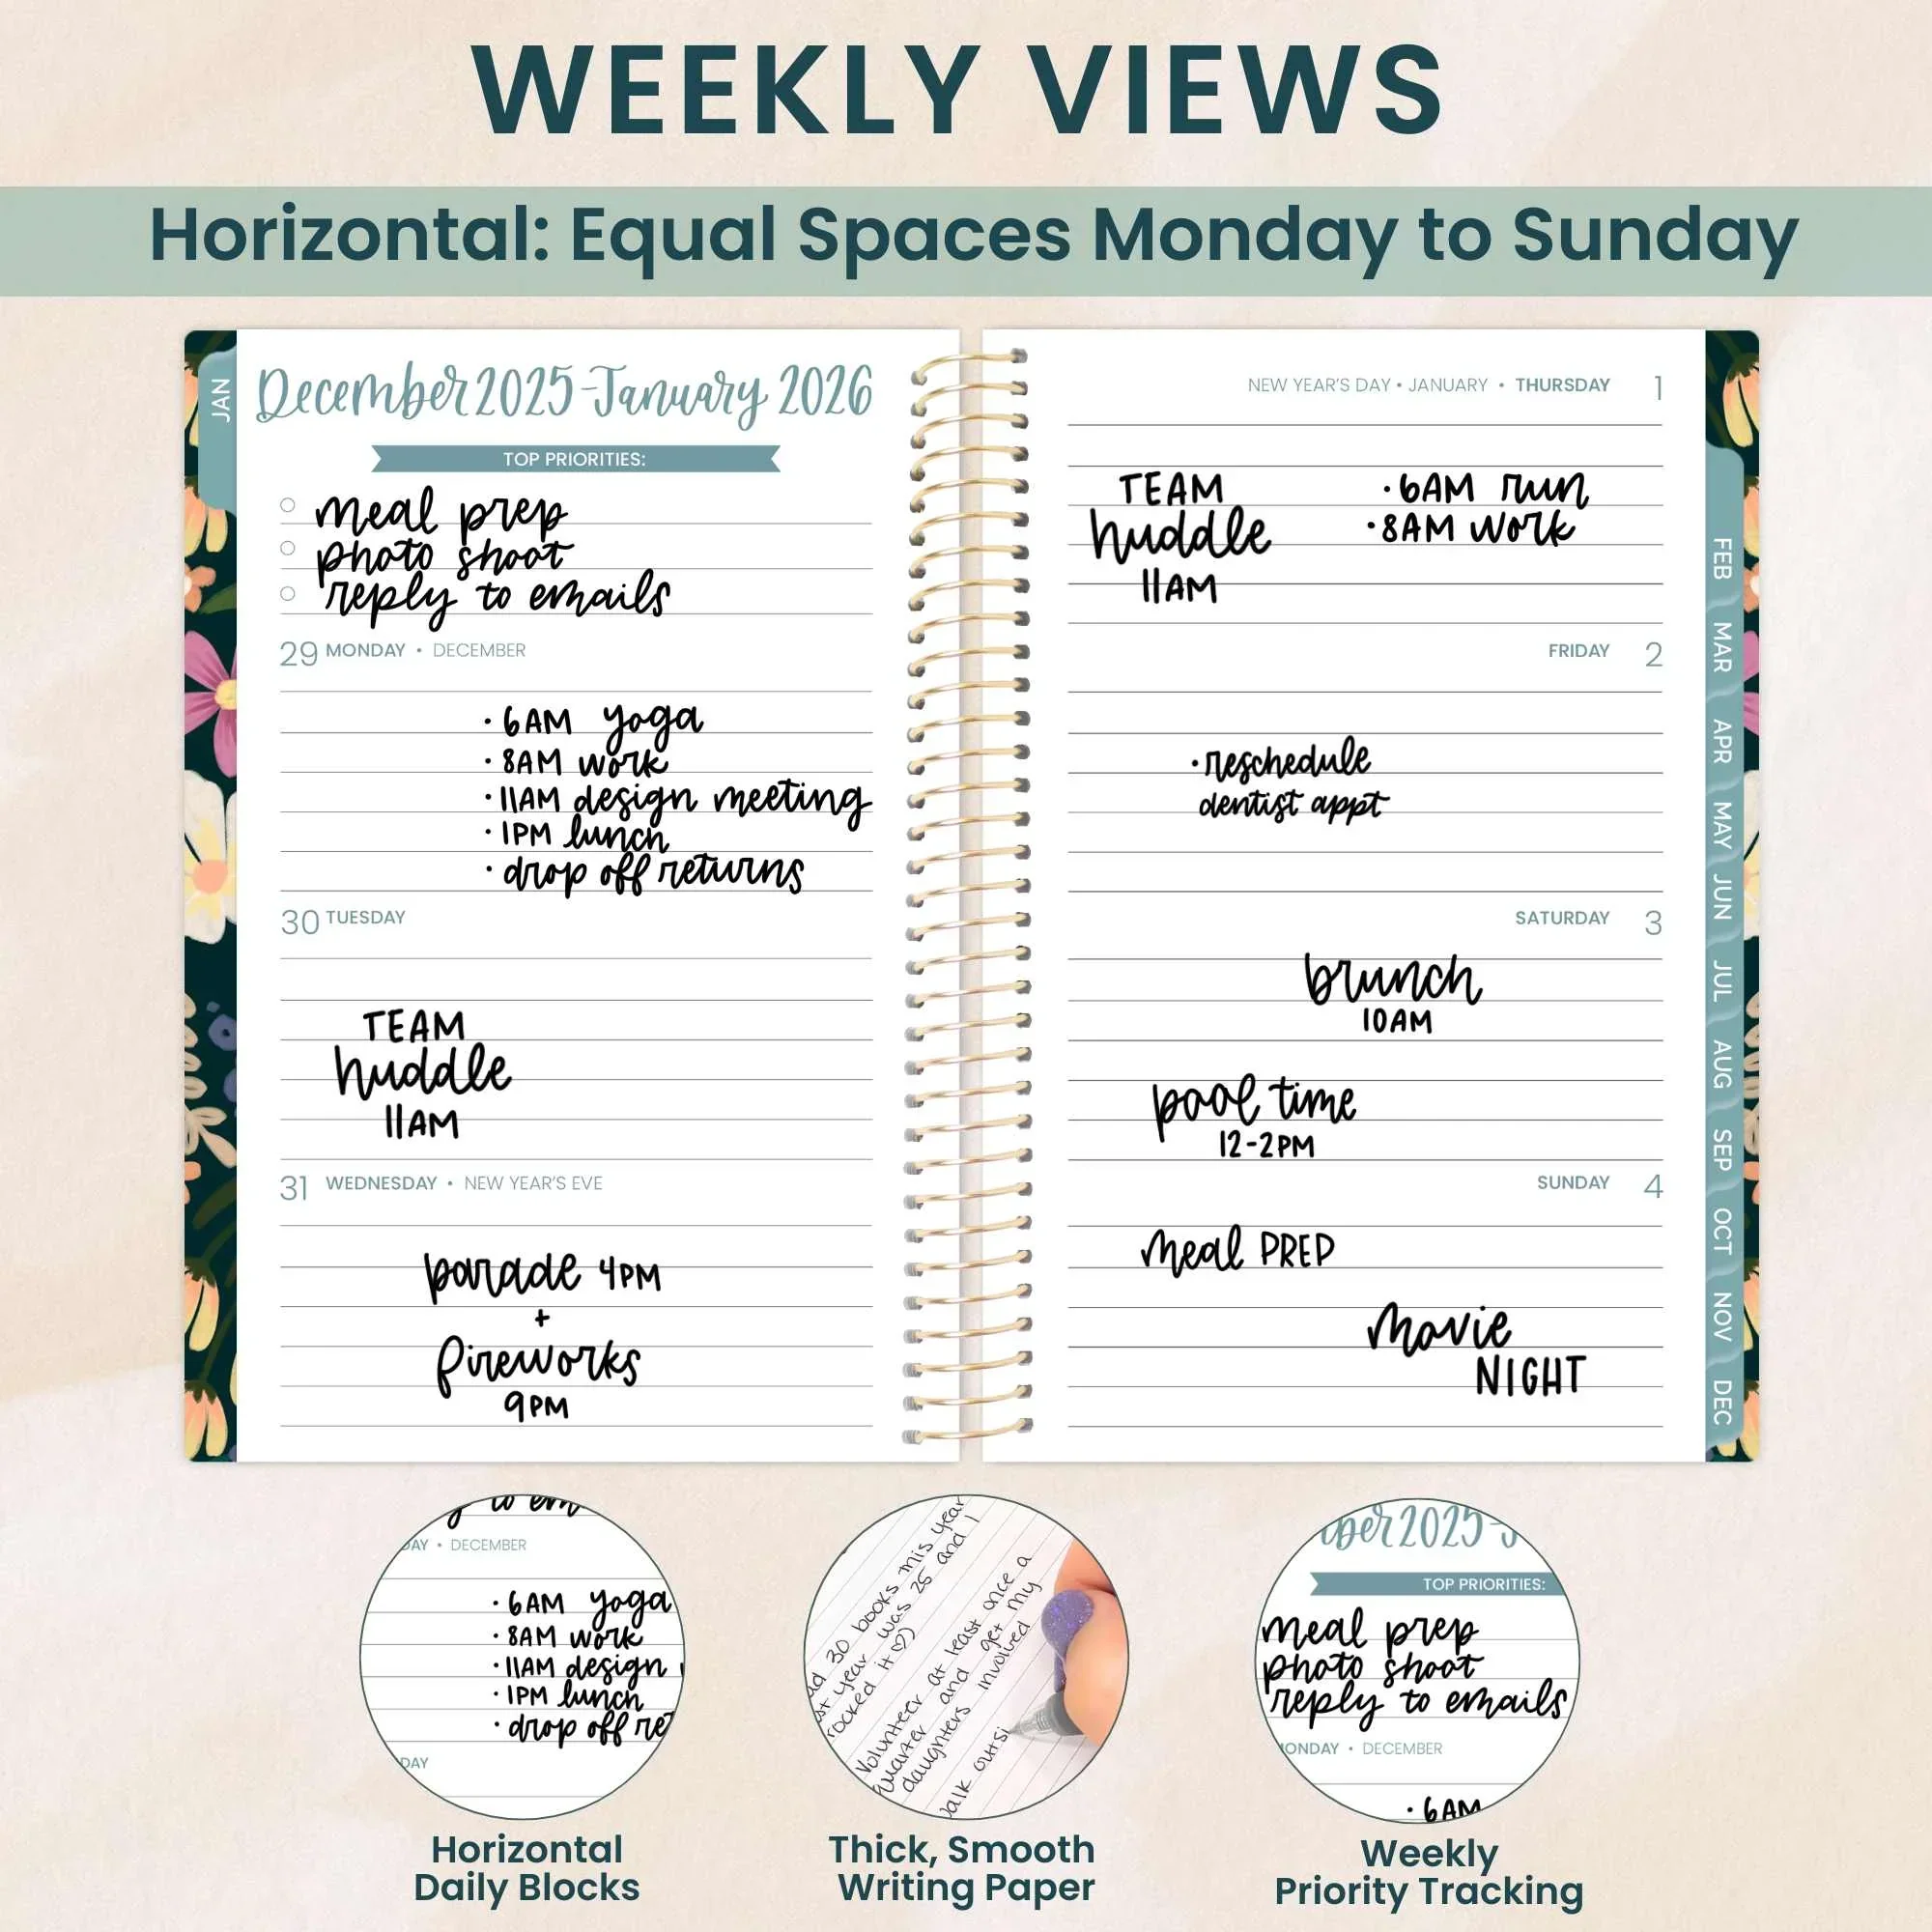 WEEKLY VIEWS
Horizontal: Equal Spaces Monday to Sunday
JAN
December 2025-January 2026
TOP PRIORITIES:
meal prep
photo shoot
reply to emails
29 MONDAY • DECEMBER
• 6AM yoga
• 8AM work
• 11AM design meeting
• 1PM lunch
• drop off returns
30 TUESDAY
TEAM
huddle
11AM
31 WEDNESDAY • NEW YEAR'S EVE
parade 4PM
+
fireworks
9PM
NEW YEAR'S DAY • JANUARY • THURSDAY 1
TEAM
huddle
11AM
• 6AM run
• 8AM work
FRIDAY 2
• reschedule
dentist appt
SATURDAY 3
brunch
10AM
pool time
12-2PM
SUNDAY 4
meal PREP
movie
NIGHT
FEB
MAR
APR
MAY
JUN
JUL
AUG
SEP
OCT
NOV
DEC
to em
DAY • DECEMBER
• 6AM yoga
• 8AM work
• 11AM design
• 1PM lunch
• drop off ret
DAY
Horizontal
Daily Blocks
ad 30 books this year
st year was 25 and I
rocked it ♡)
Volunteer at least once a
quarter and get my
daughters involved
alk outsi
Thick, Smooth
Writing Paper
ber 2025-J
TOP PRIORITIES:
meal prep
photo shoot
reply to emails
ONDAY • DECEMBER
• 6AM
Weekly
Priority Tracking